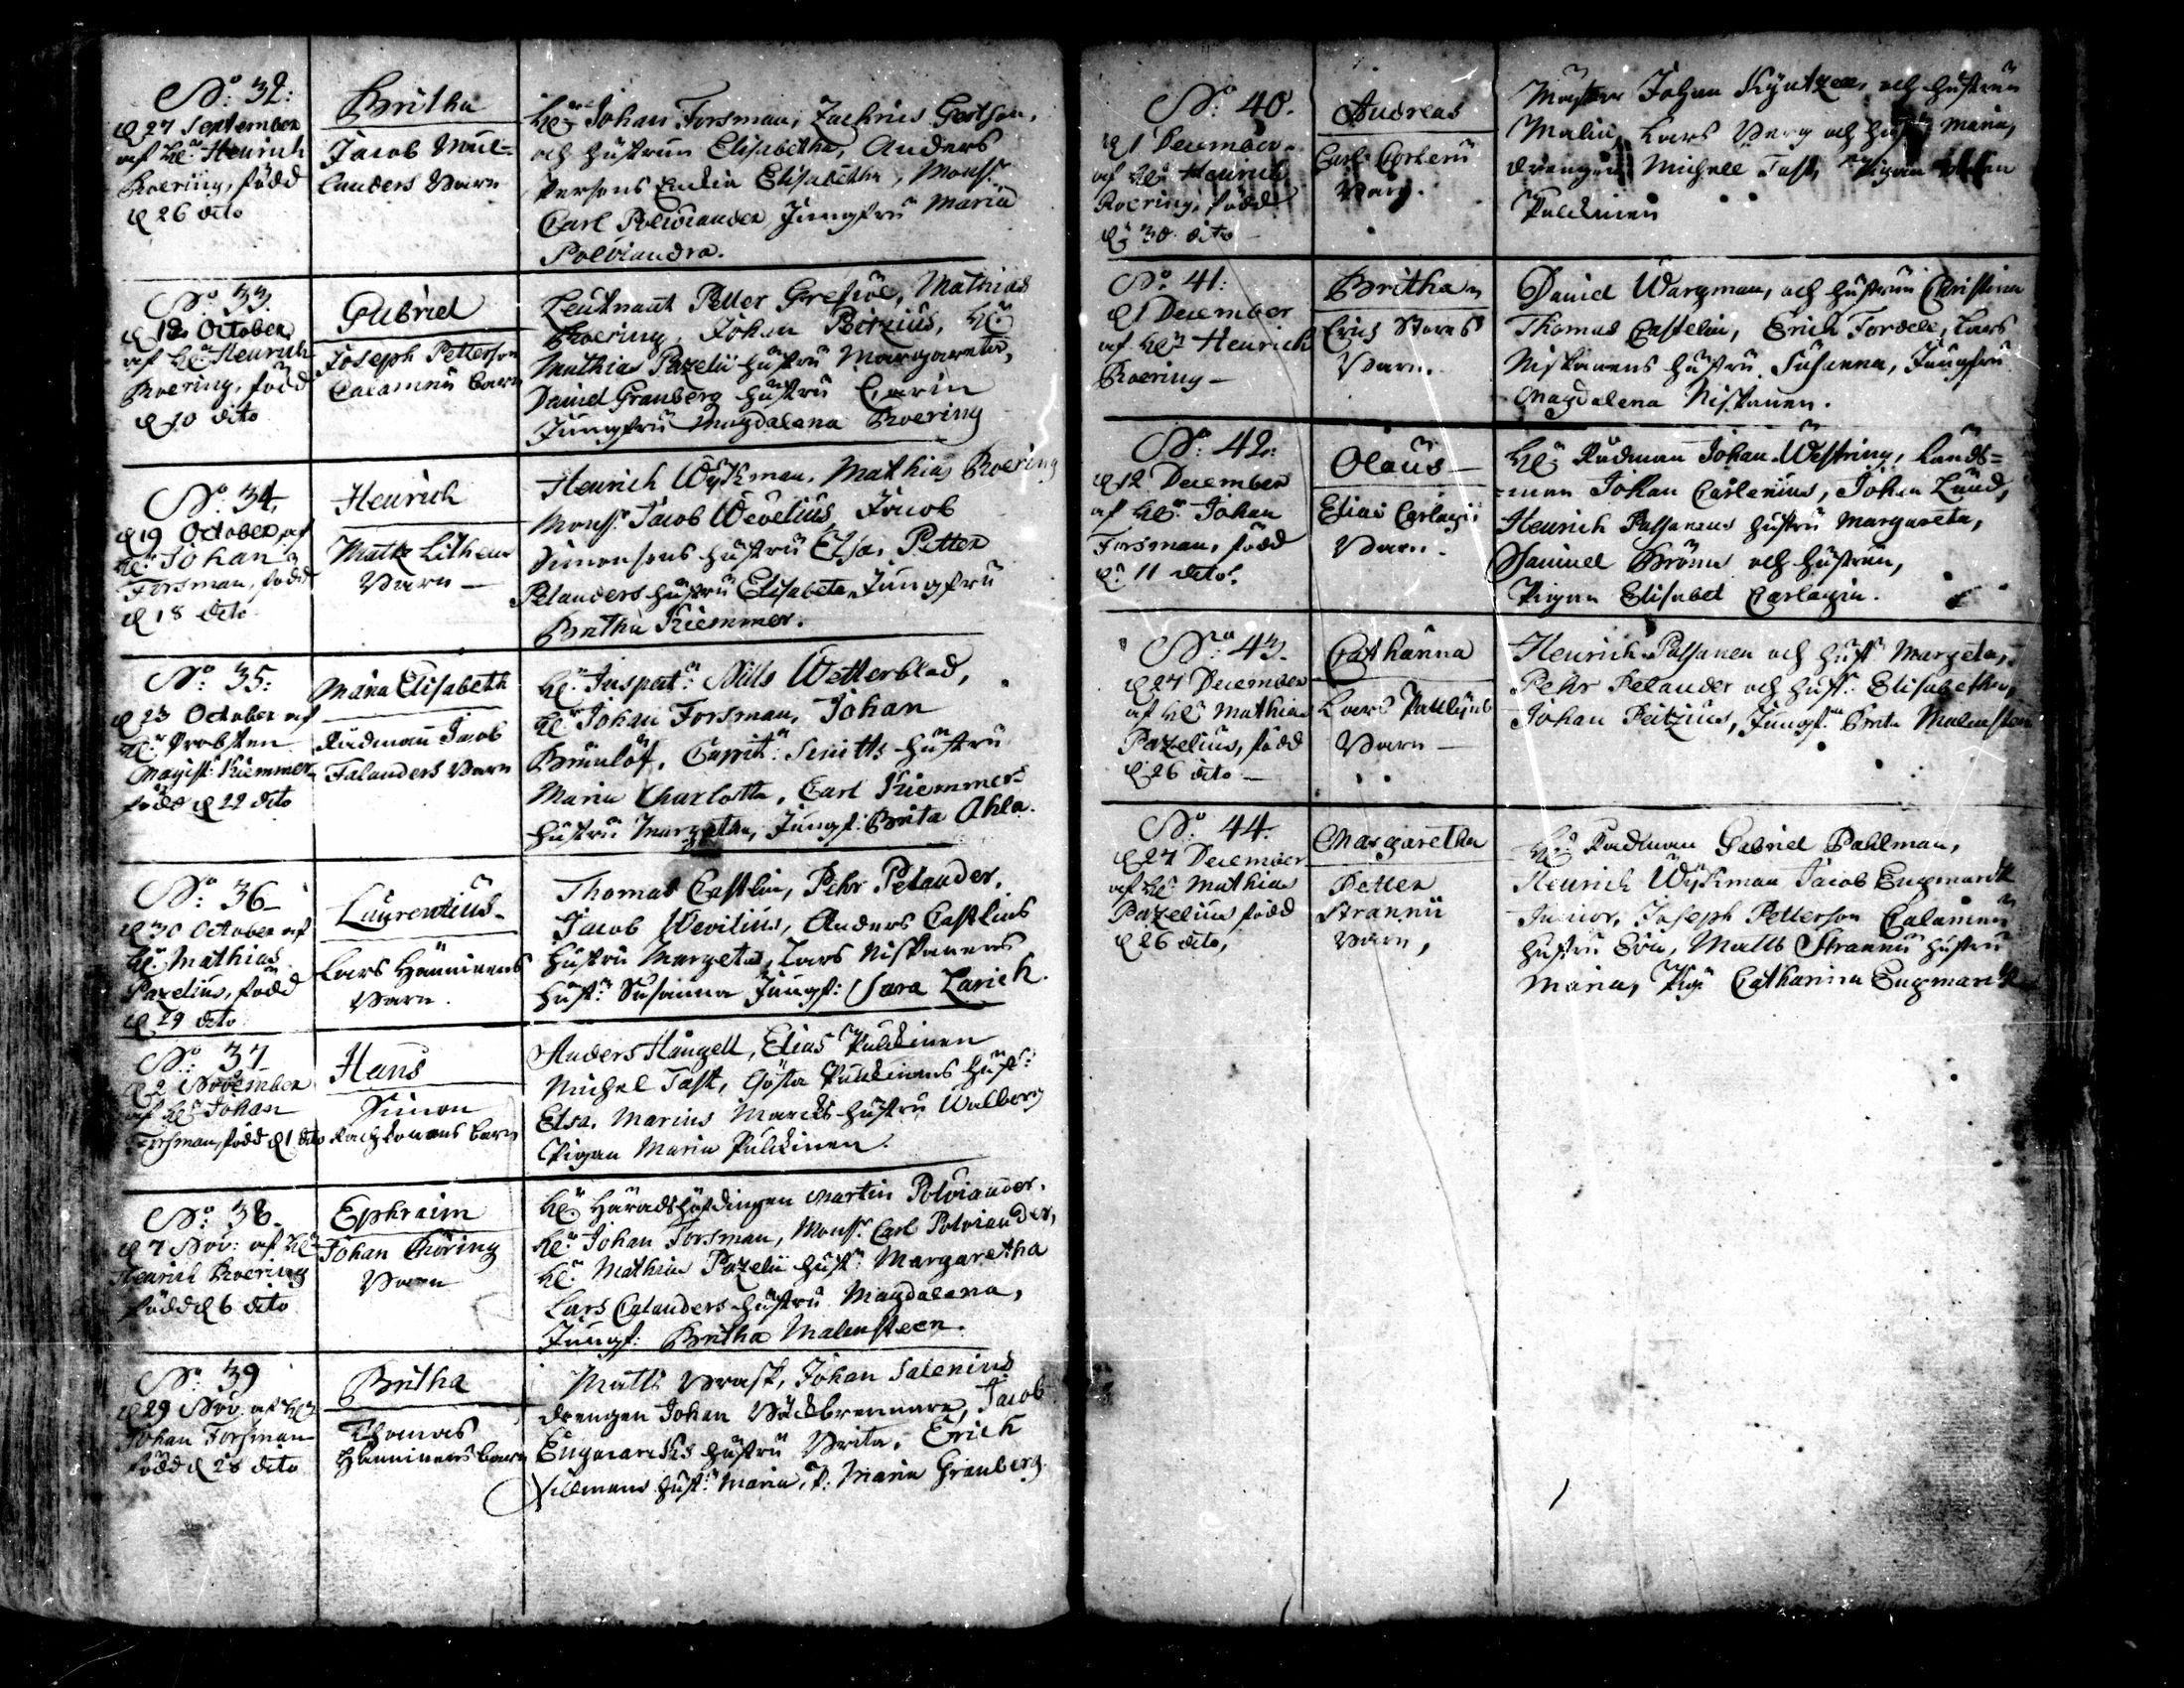 No: 32:
d 27 September
af H:r Henrich
Roering, född
d 26 dito
Britha
Jacob Mul=
landers Barn
H:r Johan Forsman, Zachries Gertson,
och hustrun Elisabetha, Anders
Persons Enkia Elisabetha, Mons:r
Carl Polviander Jungfru Maria
Polviandra.
No: 33.
d 12 October
af H:r Henrich
Roering, född
d 10 dito
Gabriel
Joseph Petterson
Calamnii barn
Leutnant Petter Mathias
Roering, Johan Peitzius, H:r
Mathias Pazelii hustru Margareta,
Daniel Granberg hustru Carin
Jungfru Magdalena Roering
No: 34.
d 19 October af
H:r Johan
Forsman, född
d 18 dito
Henrich
Matts Litheni
Barn
Henrich Wijkman, Mathias Roering
Mons:r Jacob Wevelius, Jacob
Simonsons hustru Elsa, Petter
Pelanders hustru Elisabeta, Jungfru
Britha Kiemmer.
No: 35:
d 23 October af
H:r Probsten
Magist: Kiemmer
född d 22 dito
Maria Elisabeth
Rådman Jacob
Falanders barn
H:r Inspect:r Nils Wetterblad,
H:r Johan Forsman, Johan
Brunlöf, Capit: hustru
Maria Charlotta, Carl Kiemmers
hustru Margetha, Jungf: Brita Ahla.
No: 36
d 30 October af
H:r Mathias
Pazelius, född
d 29 dito
Laurentius
Lars Hänninens
Barn.
Thomas Castlin, Pehr Pelander,
Jacob Wevilius, Anders Castlins
hustru Margeta, Lars Niskanens
hust: Susanna Jungf: Sara Zarich.
No: 37
d 2 November
af H:r Johan
Forsman, född d 1 dito
Hans
Simon
barn
Anders Hängell, Elias Pulckinen
Michel Fast, Gösta Pulckinens hust:
Elsa, Marius Marcks hustru Walborg
Pigan Maria Pulckinen.
No: 38.
d 7 Nov: af H:r
Henrich Roering
född d 6 dito
Ephraim
Johan Thoring
Barn
H:r Häradshöfdingen Martin Polviander,
H:r Johan Forsman, Mons:r Carl Polviander,
H:r Mathias Pazelii hust: Margaretha
Lars Calanders hustru Magdalena,
Jungf: Britha Malmsteen.
No: 39
d 29 Nov. af H:r
Johan Forsman
född d 28 dito
Britha
Thomas
Hänninens barn
Matts Johan Salenius
drengen Johan Jacob
Engmarcks hustru Brita, Erich
Killmans hust: Maria, P: Maria Granberg.
No: 40.
d 1 December
af H:r Henrich
Roering, född
d: 30 dito
Andreas
Carl
Barn.
Mäster Johan och hustrun
Malin, Lars Berg och hust: Maria,
drengen Michell Fast, Pigan
Pulckinen
No: 41:
d 1 December
af H:r Henrich
Roering
Britha
Erich
Barn.
Daniel Wargman, och hustrun Christina
Thomas Castelin, Erich Lars
Niskanens hustru Susanna, Jungfru
Magdalena Niskanen.
No: 42:
d 12 December
af H:r Johan
Forsman, född
d: 11 dito.
Olaus
Elias Carlagii
Barn.
H:r Rådman Johan Westring, Lands=
=man Johan Carlenius, Johan Lund,
Henrich Passanens hustru Margareta,
Samuel och hustrun,
Pigan Elisabet Carlagia.
No: 43.
d 27 December
af H:r Mathias
Pazelius, född
d 26 dito
Catharina
Lars
Barn
Henrich Passanen och hust: Margeta,
Pehr Pelander och hust: Elisabetha,
Johan Peitzius, Jungf: Brita Malmsteen
No: 44.
d 27 December
af H:r Mathias
Pazelius född
d 26 dito,
Margaretha
Petter
Strannii
barn,
H:r Rådman Gabriel Pahlman,
Henrich Wijkman Jacob Engmarck
Junior, Joseph Petterson Calamnii
hustru Eva, Matts Strannii hustru
Maria, Pig: Catharina Engmarck